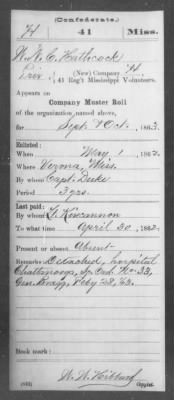 (Confederate.)
H 41 Miss.
W. W. C. Hathcock
Priv, (New) Company H,
41 Reg't Mississippi Volunteers.
Appears on
Company Muster Roll
of the organization named above,
for Sept. & Oct., 1863.
Enlisted:
When May 1, 1862.
Where Verona, Miss.
By whom Capt. Duke
Period 3 yrs.
Last paid:
By whom Kincannon
To what time April 30, 1863.
Present or absent Absent
Remarks: Detached, hospital
Chattanooga, Sp. Ord. No. 33,
Gen. Bragg, Feby 23, 63.
Book mark:
Copyist.